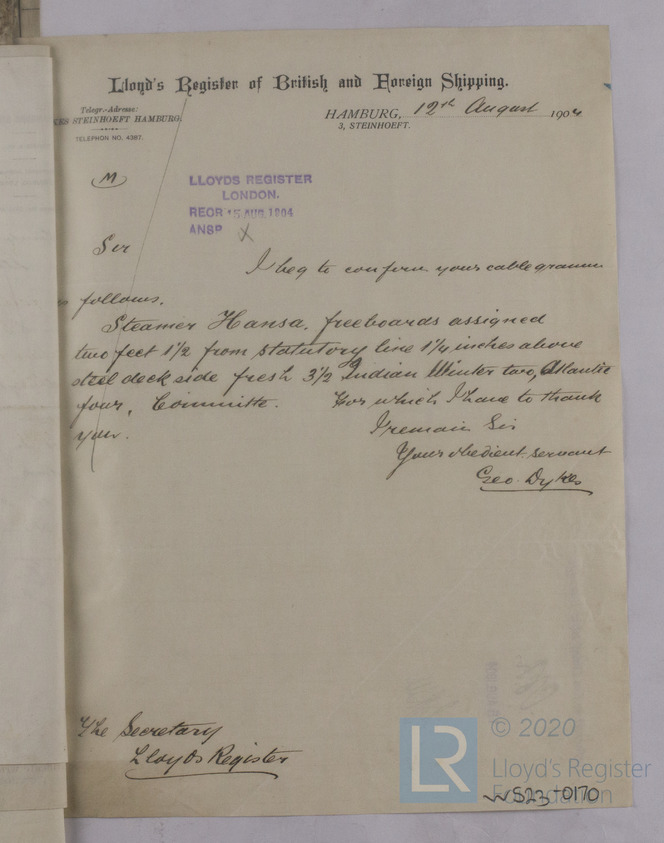 Lloyd's Register of British and Foreign Shipping.
Telegr.-Adresse:
STEINHOEFT HAMBURG.
TELEPHON NO. 4387.
HAMBURG, 12th August 1904
3, STEINHOEFT.
M
LLOYDS REGISTER
LONDON.
RECR 15 AUG 1904
ANSP X
Sir
I beg to confirm your cablegramm
follows.
Steamer Hansa, freeboards assigned
two feet 1 1/2 from statutory line 1 1/4 inches above
steel deck side fresh 3 1/2 Indian Winter two, Atlantic
four, Committe. For which I have to thank
you.
I remain Sir
Your obedient servant
Geo. Dykes
The Secretary
Lloyds Register
LR
© 2020
Lloyd's Register
Foundation
WS23-0170